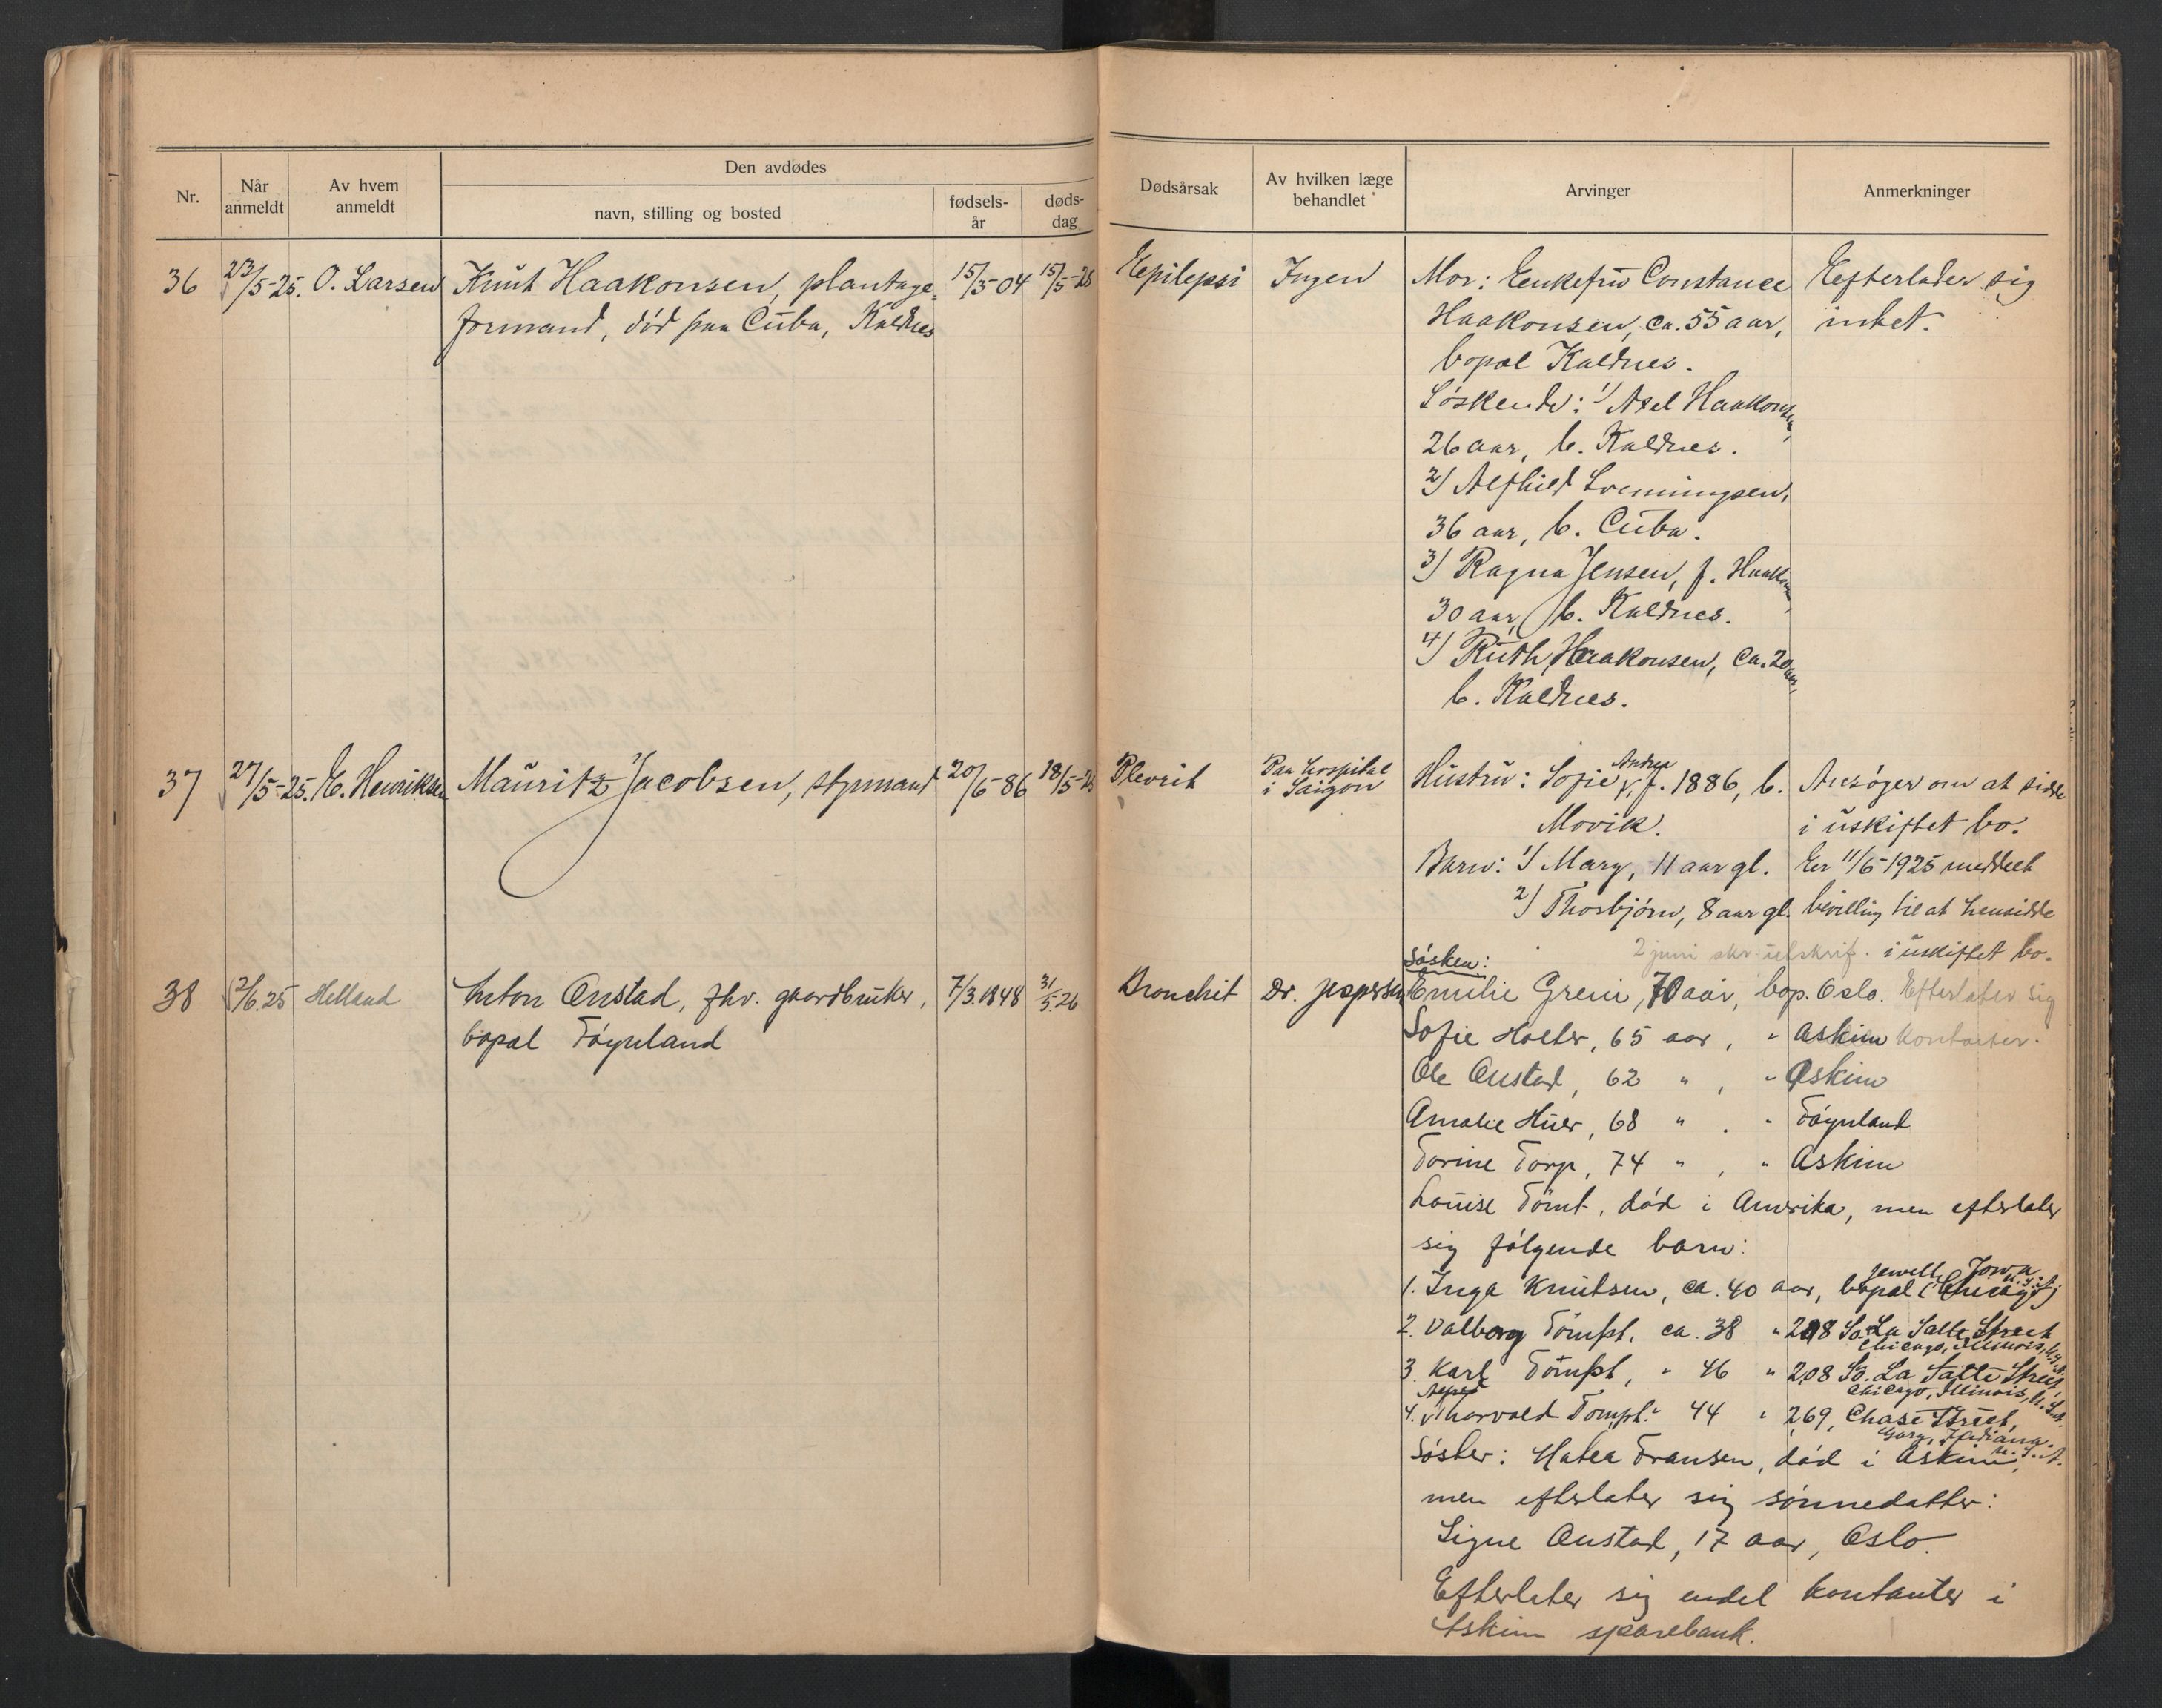 Nr.
Når anmeldt
Av hvem anmeldt
Den avdødes
navn, stilling og bosted
fødsels-år
døds-dag
Dødsårsak
Av hvilken læge behandlet
Arvinger
Anmerkninger
36 23/5-25. O. Larsen Knut Haakonsen, plantage- 15/5-04 15/5-25 Epilepsi Ingen
formand, død paa Cuba, Kaldnes
Mor: Enkefru Constance
Haakonsen, ca. 55 aar,
bopæl Kaldnes.
Søskende: 1) Axel Haakonsen,
26 aar, b. Kaldnes.
2) Alfhild
36 aar, b. Cuba.
3) Ragna Jensen, f. Haakonsen,
30 aar, b. Kaldnes.
4) Ruth Haakonsen, ca. 20 aar,
b. Kaldnes.
Efterlader sig
intet.
37 27/5-25. E. Henriksen Mauritz Jacobsen, styrmand 20/6-86 18/5-25 Plevrit Paa hospital
i Saigon
Hustru: Sofie Andrea, f. 1886, b.
Movik.
Barn: 1) Mary, 11 aar gl.
2) Thorbjørn, 8 aar gl.
Ansøger om at sidde
i uskiftet bo.
Er 11/6-1925 meddelt
bevilling til at hensidde
i uskiftet bo.
2 juni skr. utskrif.
38 2/6.25 Helland Anton Onstad, fhv. gaardbruker, 7/3.1848 31/5.26 Bronchit Dr. Jespersen
bopæl Føynland
Søsken:
Emilie Greni, 70 aar, bop. Oslo. Efterlater sig
Sofie Holter, 65 aar, " Askim kontanter.
Ole Onstad, 62 " , " Askim
Amalie Huer, 68 " . " Føynland
Torine Torp, 74 " , " Askim
Louise Tømt, død i Amerika, men efterlater
sig følgende barn:
1. Inga Knutsen, ca. 40 aar, bopæl i Chicago Jewell Jowa U.S.A.
2. Valborg Tømpt. ca. 38 " 208 So. La Salle Street
Chicago, Illinois, U.S.A.
3. Karl Tømpt, " 46 " 208 So. La Salle Street,
Chicago, Illinois, U.S.A.
4. Thorvald Tompt. " 44 " 269, Chase Street,
Gary, Indiana. U.S.A.
Søster: Matea Fransen, død i Askim,
men efterlater sig sønnedatter:
Signe Onstad, 17 aar, Oslo.
Efterlater sig endel kontanter i
Askim sparebank.